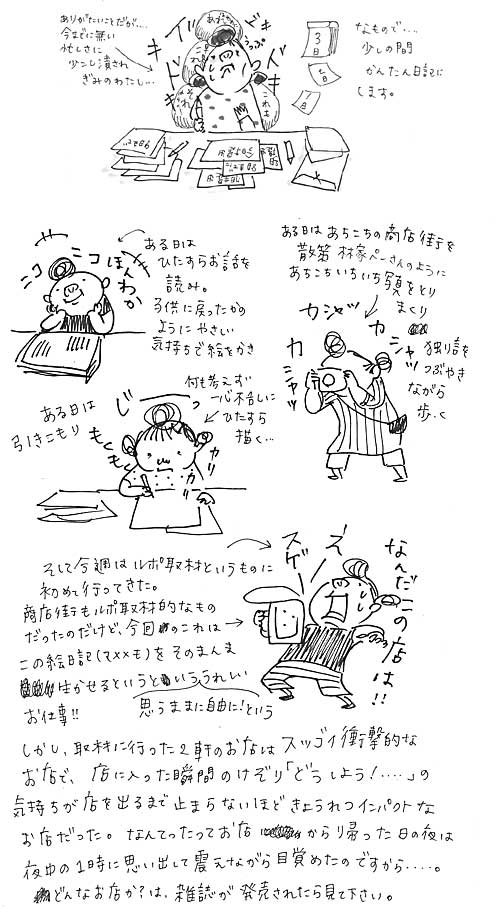 ありがたいことだが....
今までに無い
忙しさに
少こし潰され
ぎみのわたし...
イ
ド
キ
ドキ
あれ
これも
それ
3
日
日
日
なもので....
少しの間
かんたん日記に
します。
ニコ
ニコ
ほんわか
ある日は
ひたすらお話を
読み。
子供に戻ったかの
ようにやさしい
気持ちで絵をかき
ある日はあちこちの商店街を
散策 林家ペーさんのように
あちこちいちいち写真をとり
まくり
カシャッ
カシャッ
カシャッ
独り言を
つぶやき
ながら
歩く
ある日は
引きこもり
もくもく
じーっ
カリ
カリ
何も考えず
一心不乱に
ひたすら
描く...
そして今週はルポ取材というものに
初めて行ってきた。
商店街もルポ取材的なもの
だったのだけど、今回のこれは
この絵日記(て××も)をそのまんま
生かせるというといううれしい
お仕事!!
思うままに自由に!という
スゲー
え
なんだこの店は!!
しかし、取材に行った2軒のお店はスッゴイ衝撃的な
お店で、店に入った瞬間のけぞり「どうしよう!....」の
気持ちが店を出るまで止まらないほどきょうれつインパクトな
お店だった。なんてったってお店から帰った日の夜は
夜中の1時に思い出して震えながら目覚めたのですから....。
どんなお店か?は、雑誌が発売されたら見て下さい。